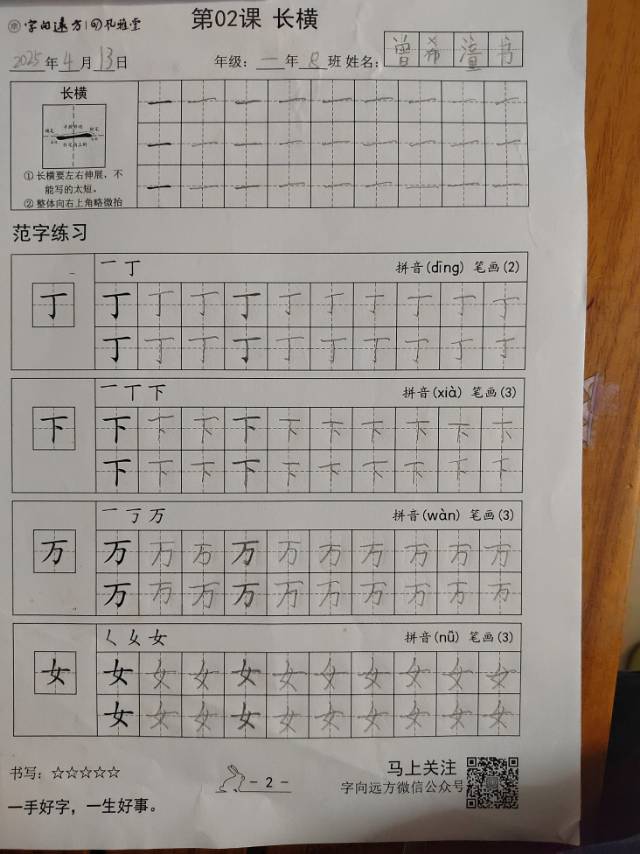 字向远方 孔雅堂 第02课 长横
2025年4月13日 年级:一年8班 姓名:曾希潼
长横
①长横要左右伸展,不
能写的太短。
②整体向右上角略微抬
范字练习
一丁 拼音(dīng) 笔画(2)
丁 丁 丁 丁 丁 丁 丁 丁 丁 丁 丁
丁 丁 丁 丁 丁 丁 丁 丁 丁 丁
一丅下 拼音(xià) 笔画(3)
下 下 下 下 下 下 下 下 下 下 下
下 下 下 下 下 下 下 下 下 下
一丂万 拼音(wàn) 笔画(3)
万 万 万 万 万 万 万 万 万 万 万
万 万 万 万 万 万 万 万 万 万
𡿨 女 拼音(nǚ) 笔画(3)
女 女 女 女 女 女 女 女 女 女 女
女 女 女 女 女 女 女 女 女 女
书写:☆☆☆☆☆ - 2 - 马上关注
字向远方微信公众号
一手好字,一生好事。